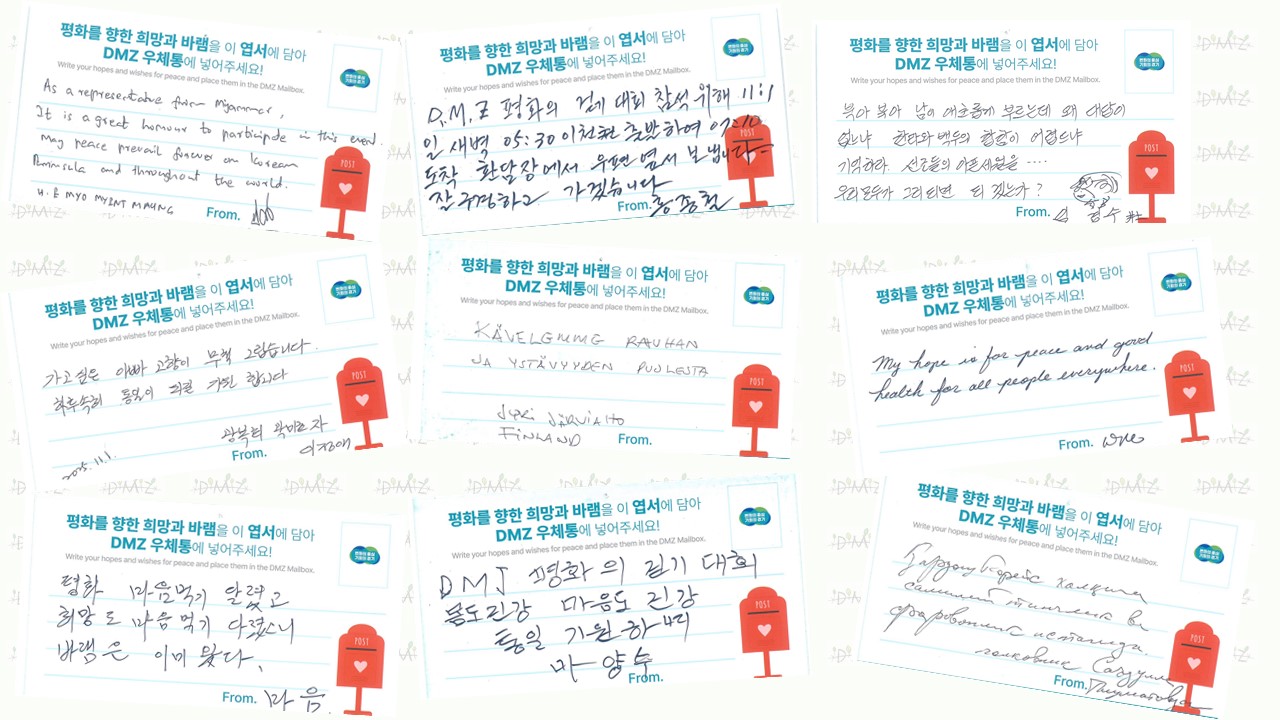 평화를 향한 희망과 바램을 이 엽서에 담아
DMZ 우체통에 넣어주세요!
Write your hopes and wishes for peace and place them in the DMZ Mailbox.
As a representative from Myanmar,
It is a great honour to participate in this event.
May peace prevail forever on Korean
Peninsula and throughout the world.
H.E MYO MYINT MAUNG
POST
From.
평화를 향한 희망과 바램을 이 엽서에 담아
DMZ 우체통에 넣어주세요!
Write your hopes and wishes for peace and place them in the DMZ Mailbox.
D.M.Z 평화의 걷기 대회 참석 위해 11:1
일 새벽 05:30 이천천 출발하여 07:10
도착 환담장에서 우편엽서 보냅니다
잘 구경하고 가겠습니다
POST
From.
평화를 향한 희망과 바램을 이 엽서에 담아
DMZ 우체통에 넣어주세요!
Write your hopes and wishes for peace and place them in the DMZ Mailbox.
북아 북아 남이 애초롭게 부르는데 왜 대답이
없느냐 한라와 백두의 함이 어렵드냐
기억하라. 선조들의 아픈세월을 ....
우리모두가 그리되면 되 겠는가?
POST
From.
평화를 향한 희망과 바램을 이 엽서에 담아
DMZ 우체통에 넣어주세요!
Write your hopes and wishes for peace and place them in the DMZ Mailbox.
가고 싶은 아빠 고향이 무척 그립습니다.
하루속히 통일이 되길 기원 합니다
2025.11.1.
POST
From.
평화를 향한 희망과 바램을 이 엽서에 담아
DMZ 우체통에 넣어주세요!
Write your hopes and wishes for peace and place them in the DMZ Mailbox.
KÄVELEMME RAUHAN
JA YSTÄVYYDEN PUOLESTA
JYRI JÄRVIAHO
FINLAND
POST
From.
평화를 향한 희망과 바램을 이 엽서에 담아
DMZ 우체통에 넣어주세요!
Write your hopes and wishes for peace and place them in the DMZ Mailbox.
My hope is for peace and good
health for all people everywhere.
POST
From.
평화를 향한 희망과 바램을 이 엽서에 담아
DMZ 우체통에 넣어주세요!
Write your hopes and wishes for peace and place them in the DMZ Mailbox.
평화 마음먹기 달렸고
희망도 마음먹기 다렸으니
바램은 이미 왔다.
POST
From. 마음
평화를 향한 희망과 바램을 이 엽서에 담아
DMZ 우체통에 넣어주세요!
Write your hopes and wishes for peace and place them in the DMZ Mailbox.
DMJ 평화의 길기 대회
몸도 건강 마음도 건강
통일 기원하며
마양수
POST
From.
평화를 향한 희망과 바램을 이 엽서에 담아
DMZ 우체통에 넣어주세요!
Write your hopes and wishes for peace and place them in the DMZ Mailbox.
POST
From.